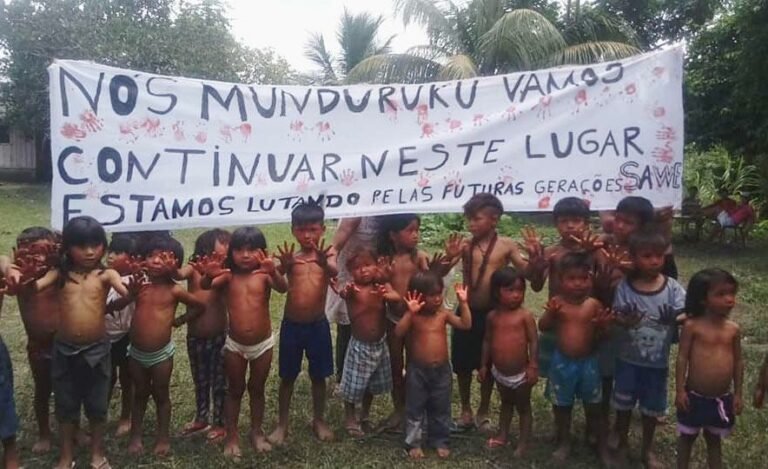 NÓS MUNDURUKU VAMOS
CONTINUAR NESTE LUGAR
ESTAMOS LUTANDO PELAS FUTURAS GERAÇÕES SAWE